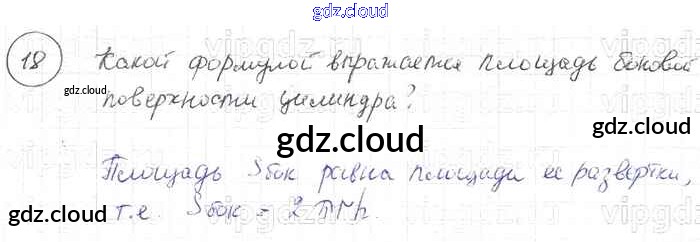 gdz.cloud
18 Какой формулой выражается площадь боковой
gdz.cloud
поверхности цилиндра?
gdz.cloud
gdz.cloud
Площадь Sбок равна площади ее развертки,
gdz.cloud
т.е. Sбок = 2πrh.
gdz.cloud